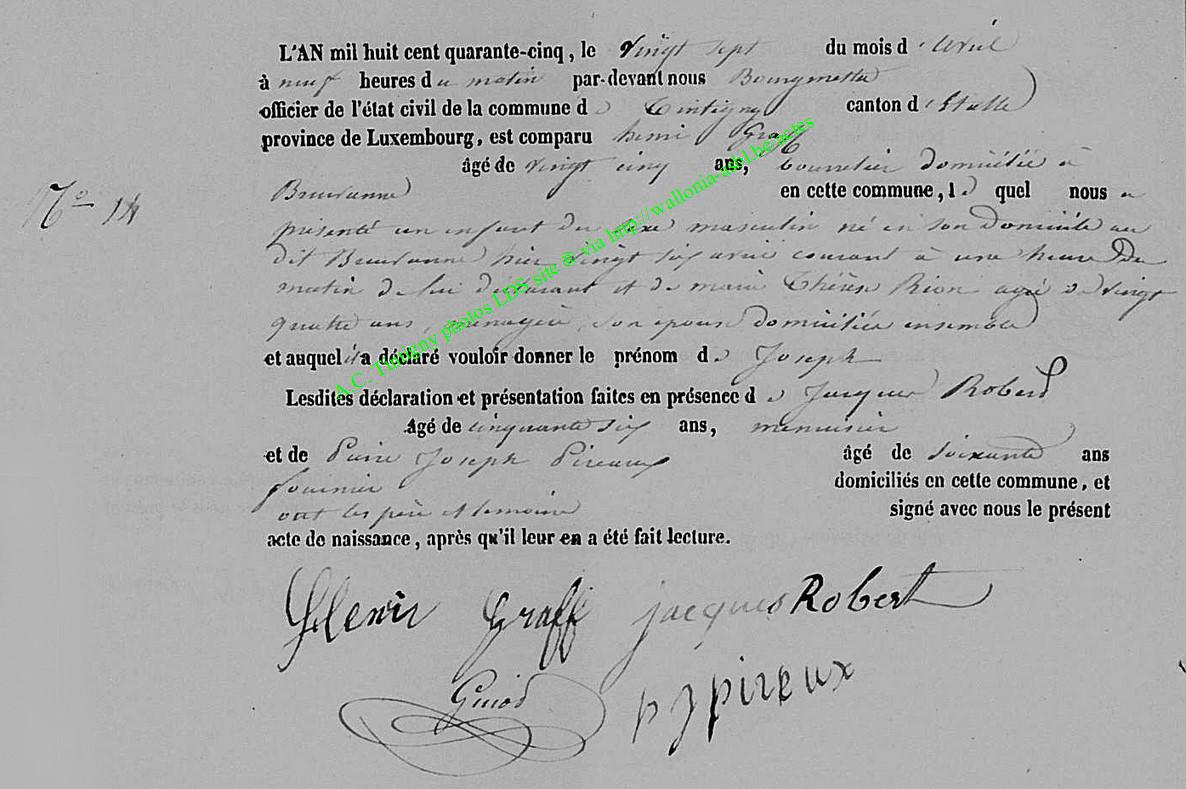 L'AN mil huit cent quarante-cinq, le Vingt sept du mois d'avril
à neuf heures du matin par-devant nous Bourgmestre
officier de l'état civil de la commune de Tintigny canton d'Etalle
province de Luxembourg, est comparu henri Graff
âgé de vingt cinq ans, bourrelier domicilié à
en cette commune, le quel nous a
N° 14
présenté un enfant du sexe masculin né en son domicile au
dit hier vingt six avril courant à une heure Du
matin de lui déclarant et de marie Thérèse Rion agée de vingt
quatre ans, ménagère, son epouse domiciliés ensemble
et auquel il a déclaré vouloir donner le prénom de Joseph
Lesdites déclaration et présentation faites en présence de Jacques Robert
Agé de cinquante six ans, menuisier
et de Pierre Joseph Pireaux âgé de soixante ans
domiciliés en cette commune, et
ont les père et temoins signé avec nous le présent
acte de naissance, après qu'il leur en a été fait lecture.
Henri Graff jacques Robert
p J pireux
A.C. Tintigny photos LDS site & via http://wallonia-asbl.be/actes